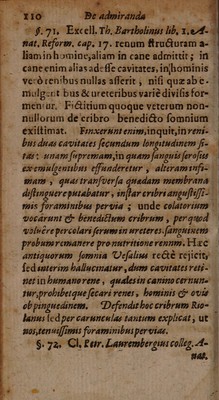 110 De admiranda
§. 71. Excell. Th. Bartholinus lib. 1. A-
nat. Reform. cap. 17. renum structuram a-
liam in homine, aliam in cane admittit; in
cane enim alias adesse cavitates, in hominis
verò renibus nullas asserit, nisi quæ ab e-
mulgentibus & ureteribus variè divisis for-
mentur. Fictitium quoque veterum non-
nullorum de cribro benedicto somnium
existimat. Finxerunt enim, inquit, in reni-
bus duas cavitates secundum longitudinem si-
tas: unam supremam, in quam sanguis serosus
ex emulgentibus effunderetur, alteram infi-
mam, quas transversa quadam membrana
distinguere putabatur, instar cribri angustissi-
mis foraminibus pervia; unde colatorium
vocarunt & benedictum cribrum, per quod
voluêre percolari serum in ureteres, sanguinem
probum remanere pro nutritione renum. Hæc
antiquorum somnia Vesalius rectè rejicit,
sed interim hallucinatur, dum cavitates reti-
net in humano rene, quales in canino cernun-
tur, prohibetque secari renes, hominis & ovis
ob pinguedinem. Defendit hoc cribrum Rio-
lanus sed per carunculas tantum explicat, ut
nos, tenuissimis foraminibus pervias.
§. 72. Cl. Petr. Laurembergius colleg. A-
nat.